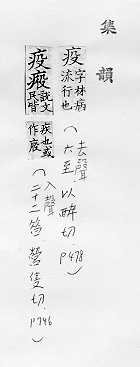 集韻
疫字林病流行也（去聲 六至 以醉切 p478）
疫説文民皆疾也或作（入聲 二十二昔 營隻切 p746）